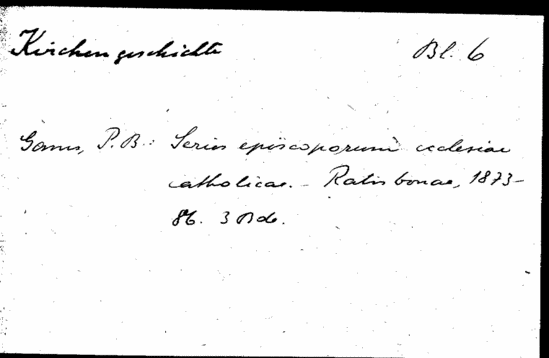 Kirchengeschichte Bl. 6
Gams, P.B.: Series episcoporum ecclesiae
catholicae. - Ratisbonae, 1873-
86. 3 Bde.